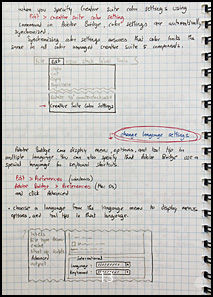 when you specify Creative Suite color settings using
Edit > creative suite color settings
command in Adobe Bridge, color settings are automatically
synchronized.
Synchronizing color settings ensures that color looks the
same in all color managed creative suite 3 components.
File Edit View
Creative Suite Color Settings
change language settings
Adobe Bridge can display menus, options, and tool tips in
multiple language. You can also specify that Adobe Bridge use a
special language for keyboard shortcuts.
Edit > Preferences (windows)
Adobe Bridge > Preferences (Mac OS)
and click Advanced
• choose a language from the language menu to display menus,
options, and tool tips in that language.
labels
File type
Advanced
output
International
Language:
Keyboard: